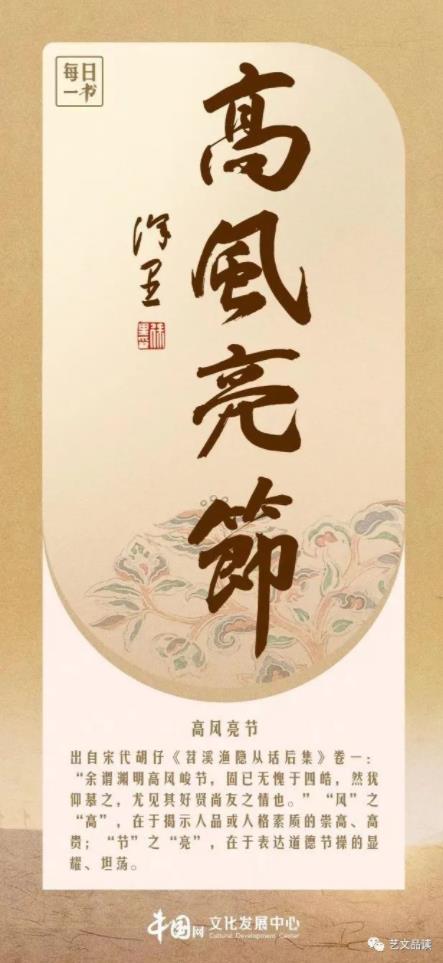 每日
一书
高風亮節
徐里
高风亮节
出自宋代胡仔《苕溪渔隐丛话后集》卷一：
“余谓渊明高风峻节，固已无愧于四皓，然犹
仰慕之，尤见其好贤尚友之情也。”“风”之
“高”，在于揭示人品或人格素质的崇高、高
贵；“节”之“亮”，在于表达道德节操的显
耀、坦荡。
中国网 文化发展中心
Cultural Development Center
艺文品读